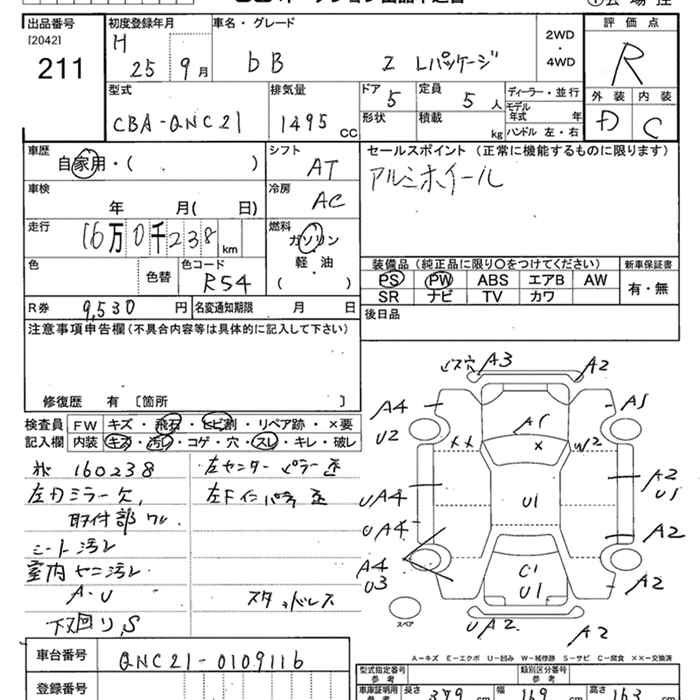 出品番号
[2042]
211
初度登録年月
H 25年 9月
車名・グレード
bB Z Lパッケージ
2WD
・
4WD
評価点
R
外装 内装
D C
型式
CBA-QNC21
排気量
1495 cc
ドア 5
形状
定員 5 人
積載 kg
ディーラー・並行
モデル年式 年
ハンドル 左・右
車歴
自家用・( )
シフト
AT
車検
年 月( 日)
冷房
AC
セールスポイント (正常に機能するものに限ります)
アルミホイール
走行
16万0千238 km
燃料
ガソリン
・
軽・油
( )
色
色替
色コード
R54
装備品 (純正品に限り○をつけてください)
PS PW ABS エアB AW
SR ナビ TV カワ
新車保証書
有・無
R券 9,530 円
名変通知期限 月 日
後日品
注意事項申告欄(不具合内容等は具体的に記入して下さい)
修復歴 有 〔箇所 〕
検査員
記入欄
FW キズ・飛石・ヒビ割・リペア跡・×要
内装 キズ・汚れ・コゲ・穴・スレ・キレ・破レ
160238
左ドミラー欠,
取付部ワレ
シート汚レ
室内ヤニ汚レ
A・U
下廻り,S
左センターピラー歪
左Fインパネ歪
スタッドレス
ビス穴 A3
A2
A4
U2
A1
A1
××
×
W2
UA4
UA4
A4
U3
U1
A2
U1
A2
C1
U1
A2
UA2
A2
スペア
A-キズ E-エクボ U-凹み W-補修跡 S-サビ C-腐食 ××-交換済
車台番号
QNC21-0109116
登録番号
型式指定番号
参考
類別区分番号
参考
車庫証明用
参考
長さ 379 cm
幅 169 cm
高さ 163 cm